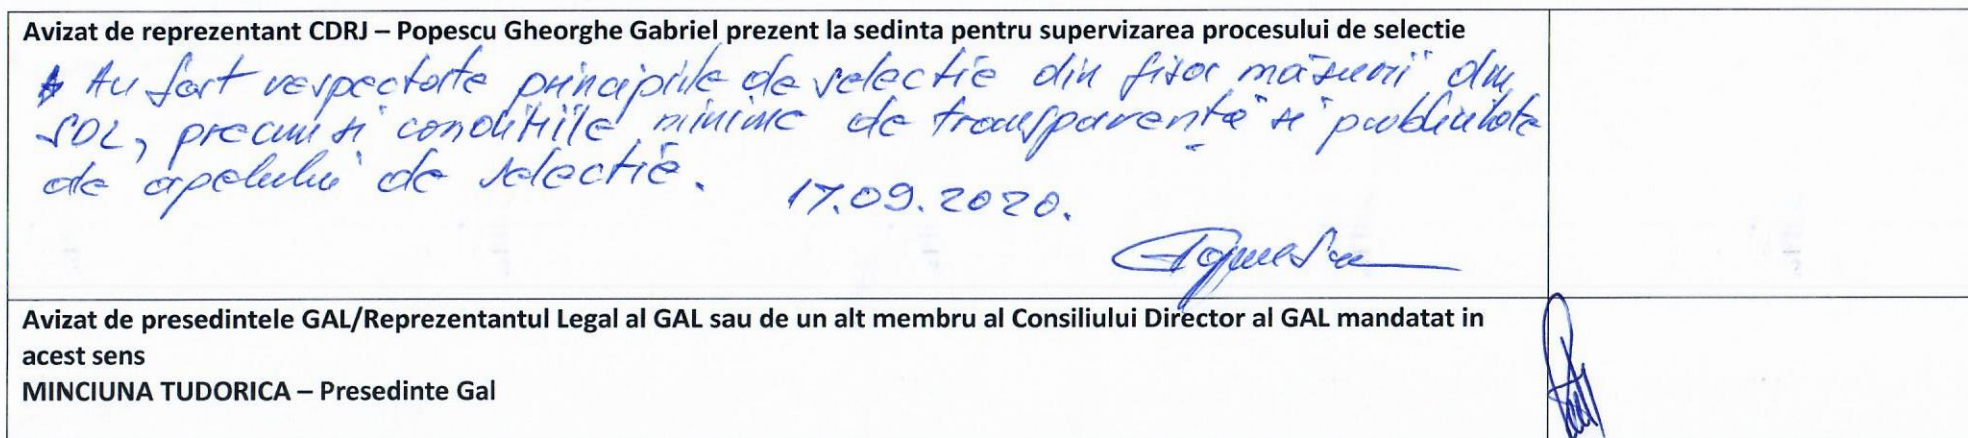 Avizat de reprezentant CDRJ – Popescu Gheorghe Gabriel prezent la sedinta pentru supervizarea procesului de selectie
Au fost respectate principiile de selectie din fisa măsurii din
SDL, precum si conditiile minime de transparență si publicitate
ale apelului de selectie. 17.09.2020.
Popescu
Avizat de presedintele GAL/Reprezentantul Legal al GAL sau de un alt membru al Consiliului Director al GAL mandatat in
acest sens
MINCIUNA TUDORICA – Presedinte Gal